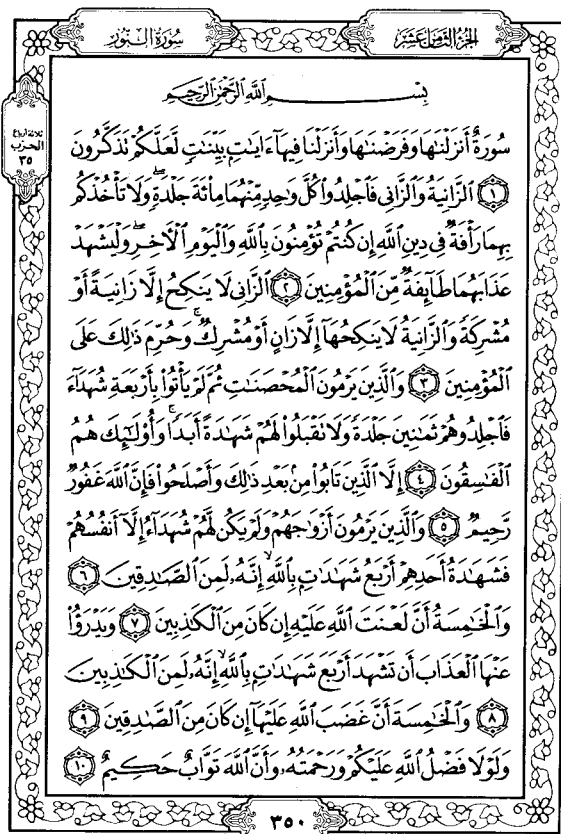 الجزء الثامن عشر
سورة النور
ثلاثة أرباع
الحزب
٣٥
بِسْمِ اللَّهِ الرَّحْمَٰنِ الرَّحِيمِ
سُورَةٌ أَنزَلْنَٰهَا وَفَرَضْنَٰهَا وَأَنزَلْنَا فِيهَآ ءَايَٰتٍۭ بَيِّنَٰتٍ لَّعَلَّكُمْ تَذَكَّرُونَ
١ الزَّانِيَةُ وَالزَّانِي فَاجْلِدُوا۟ كُلَّ وَٰحِدٍ مِّنْهُمَا مِا۟ئَةَ جَلْدَةٍ ۖ وَلَا تَأْخُذْكُم
بِهِمَا رَأْفَةٌ فِي دِينِ اللَّهِ إِن كُنتُمْ تُؤْمِنُونَ بِاللَّهِ وَالْيَوْمِ الْأَخِرِ ۖ وَلْيَشْهَدْ
عَذَابَهُمَا طَآئِفَةٌ مِّنَ الْمُؤْمِنِينَ ٢ الزَّانِي لَا يَنكِحُ إِلَّا زَانِيَةً أَوْ
مُشْرِكَةً وَالزَّانِيَةُ لَا يَنكِحُهَآ إِلَّا زَانٍ أَوْ مُشْرِكٌ ۚ وَحُرِّمَ ذَٰلِكَ عَلَى
الْمُؤْمِنِينَ ٣ وَالَّذِينَ يَرْمُونَ الْمُحْصَنَٰتِ ثُمَّ لَمْ يَأْتُوا۟ بِأَرْبَعَةِ شُهَدَآءَ
فَاجْلِدُوهُمْ ثَمَٰنِينَ جَلْدَةً وَلَا تَقْبَلُوا۟ لَهُمْ شَهَٰدَةً أَبَدًا ۚ وَأُو۟لَٰٓئِكَ هُمُ
الْفَٰسِقُونَ ٤ إِلَّا الَّذِينَ تَابُوا۟ مِنۢ بَعْدِ ذَٰلِكَ وَأَصْلَحُوا۟ فَإِنَّ اللَّهَ غَفُورٌ
رَّحِيمٌ ٥ وَالَّذِينَ يَرْمُونَ أَزْوَٰجَهُمْ وَلَمْ يَكُن لَّهُمْ شُهَدَآءُ إِلَّآ أَنفُسُهُمْ
فَشَهَٰدَةُ أَحَدِهِمْ أَرْبَعُ شَهَٰدَٰتٍۭ بِاللَّهِ ۙ إِنَّهُۥ لَمِنَ الصَّٰدِقِينَ ٦
وَالْخَٰمِسَةُ أَنَّ لَعْنَتَ اللَّهِ عَلَيْهِ إِن كَانَ مِنَ الْكَٰذِبِينَ ٧ وَيَدْرَؤُا۟
عَنْهَا الْعَذَابَ أَن تَشْهَدَ أَرْبَعَ شَهَٰدَٰتٍۭ بِاللَّهِ ۙ إِنَّهُۥ لَمِنَ الْكَٰذِبِينَ
٨ وَالْخَٰمِسَةَ أَنَّ غَضَبَ اللَّهِ عَلَيْهَآ إِن كَانَ مِنَ الصَّٰدِقِينَ ٩
وَلَوْلَا فَضْلُ اللَّهِ عَلَيْكُمْ وَرَحْمَتُهُۥ وَأَنَّ اللَّهَ تَوَّابٌ حَكِيمٌ ١٠
٣٥٠